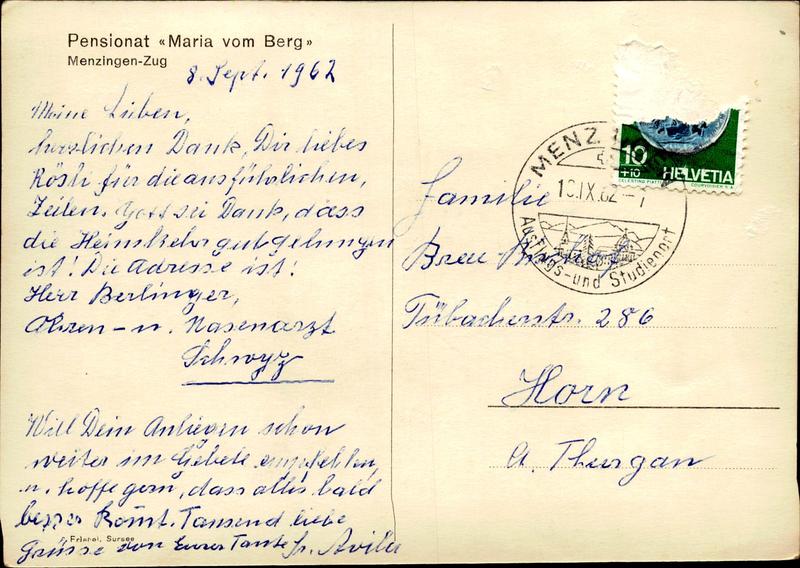 Pensionat «Maria vom Berg»
Menzingen-Zug
8. Sept. 1962
Meine Lieben,
herzlichen Dank, Dir liebes
Rösli für die ausführlichen,
Zeilen. Gott sei Dank, dass
die Heimkehr gut gelungen
ist! Die Adresse ist!
Herr Berlinger,
Ohren- u. Nasenarzt
Schwyz
Will Dein Anliegen schon
weiter im Gebete empfehlen,
u. hoffe gern, dass alles bald
besser kommt. Tausend liebe
Grüsse von Eurer Tante Sr. Avila
Friebel, Sursee
10
+10
HELVETIA
COURVOISIER S.A.
MENZ
10.IX.62-7
Ausflugs- und Studienort
Familie
Breu
Tübacherstr. 286
Horn
Ct. Thurgau